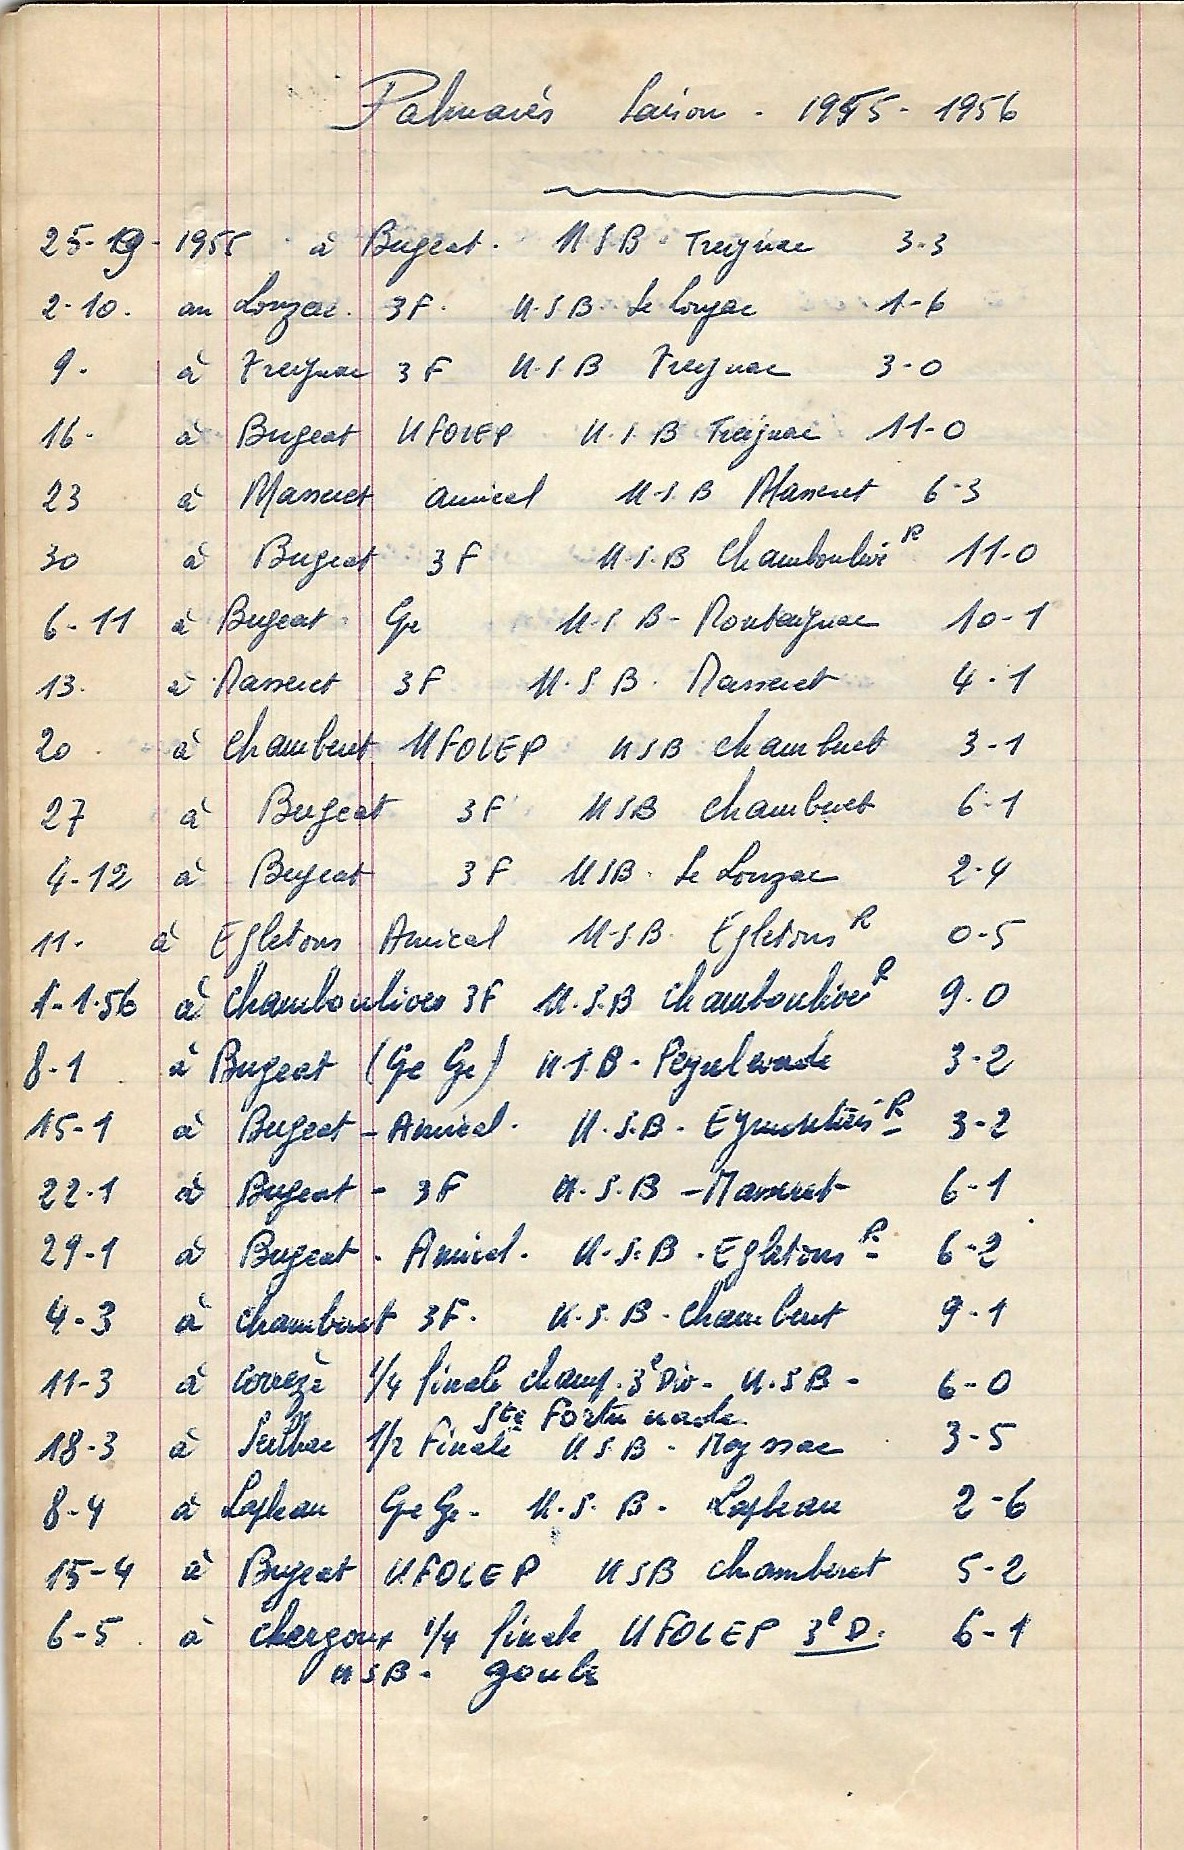 Palmarés Saison - 1955 - 1956
25-9-1955 à Bugeat. USB Treignac 3-3
2-10. au Lonzac. 3F. U.S.B. Le Lonzac 1-6
9. à Treignac 3F U.S.B Treignac 3-0
16. à Bugeat UFOLEP U.S.B Treignac 11-0
23 à Masseret amical U.S.B Masseret 6-3
30 à Bugeat 3F U.S.B Chamboulive R 11-0
6-11 à Bugeat Ge U.S.B - Montaignac 10-1
13. à Masseret 3F U.S.B. Masseret 4-1
20 à Chamberet UFOLEP USB Chamberet 3-1
27 à Bugeat 3F USB Chamberet 6-1
4-12 à Bugeat 3F USB. Le Lonzac 2-4
11. à Egletons Amical U.S.B. Egletons R 0-5
1-1-56 à Chamboulives 3F U.S.B Chamboulives R 9.0
8-1 à Bugeat (Ge Ge) U.S.B - Peyrelevade 3-2
15-1 à Bugeat - Amical. U.S.B - Eymoutiers R 3-2
22.1 à Bugeat - 3F U.S.B - Masseret - 6-1
29-1 à Bugeat - Amical. U.S.B - Egletons R 6-2
4-3 à Chamberet 3F. U.S.B - Chamberet 9-1
11-3 à Corrèze 1/4 finale champ. 3e Div - U.S.B - 6-0
Ste Fortunade
18-3 à Seilhac 1/2 Finale U.S.B - Meyssac 3-5
8-4 à Lapleau Ge Ge - U.S.B - Lapleau 2-6
15-4 à Bugeat UFOLEP USB Chamberet 5-2
6-5 à Chergoux 1/4 finale UFOLEP 3e D. 6-1
USB - Goulles